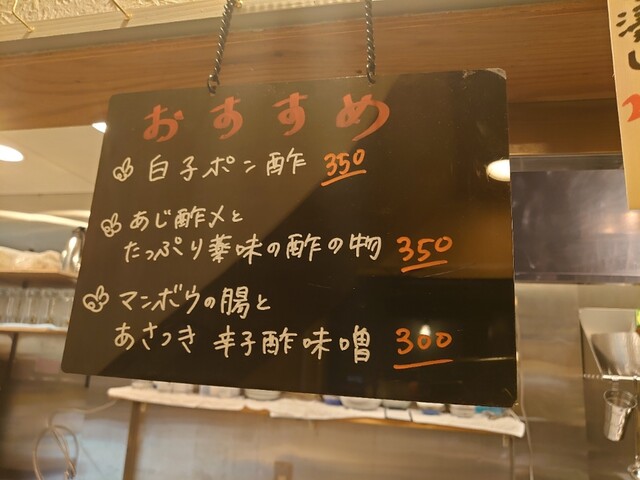 おすすめ
白子ポン酢 350
あじ酢〆と
たっぷり薬味の酢の物 350
マンボウの腸と
あさつき 辛子酢味噌 300